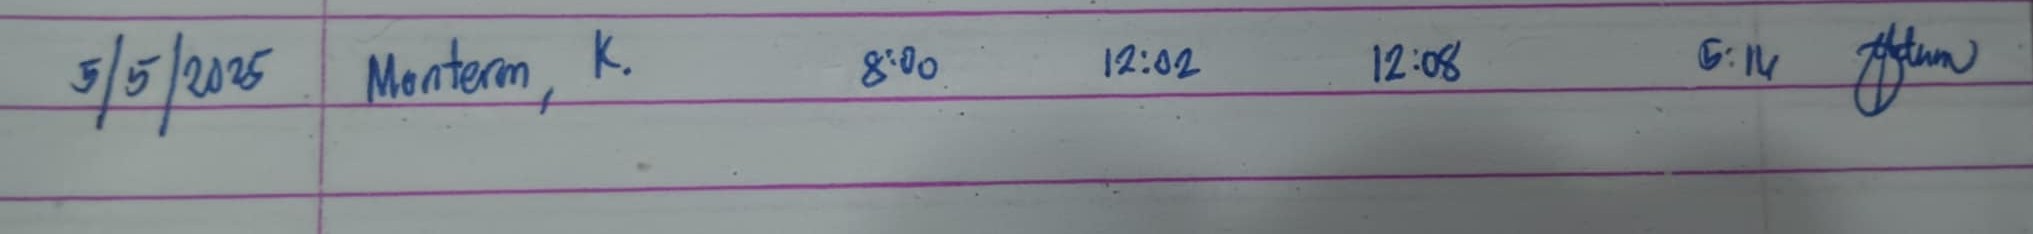 5/5/2025 Monterm, K. 8:00 12:02 12:08 5:14